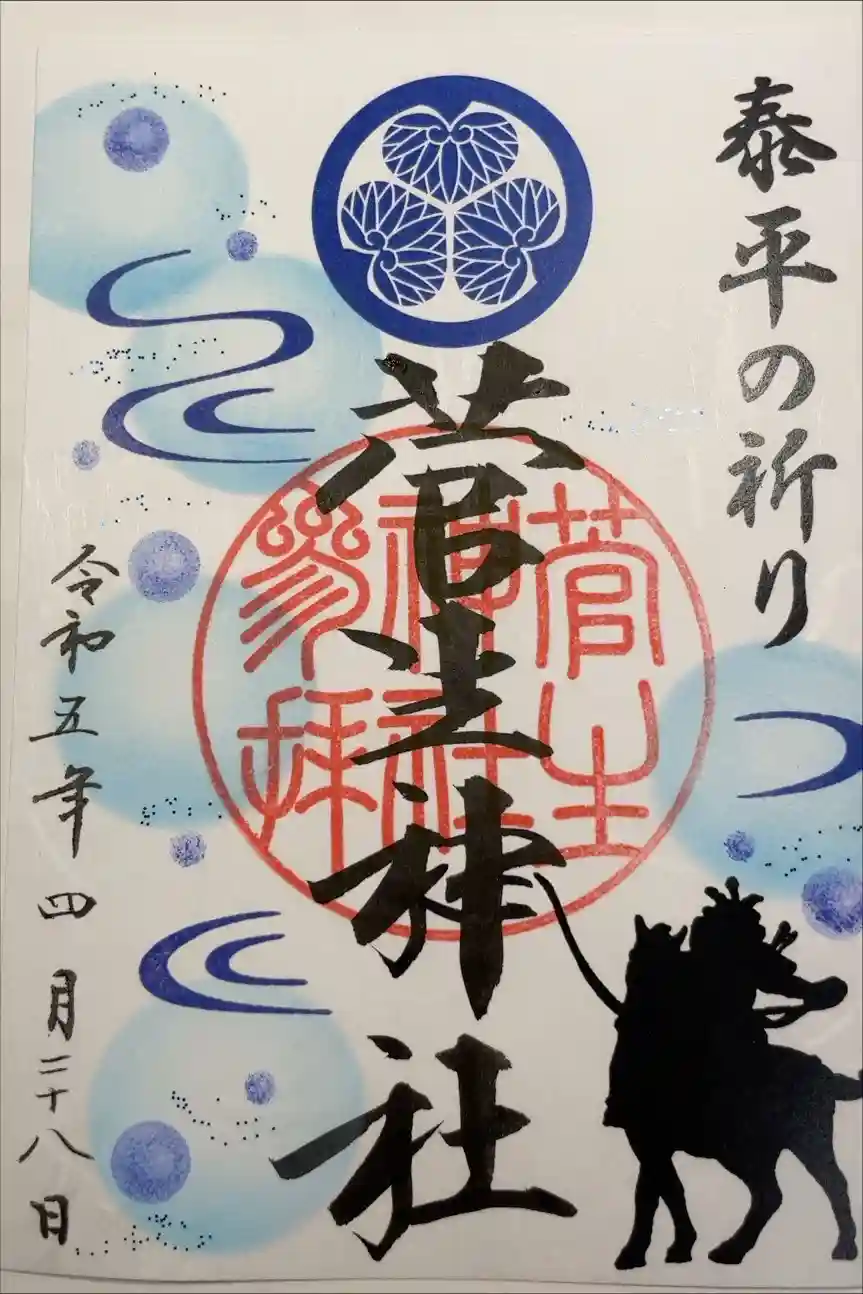 泰平の祈り
菅生神社
菅生
神社
参拝
令和五年四月二十八日